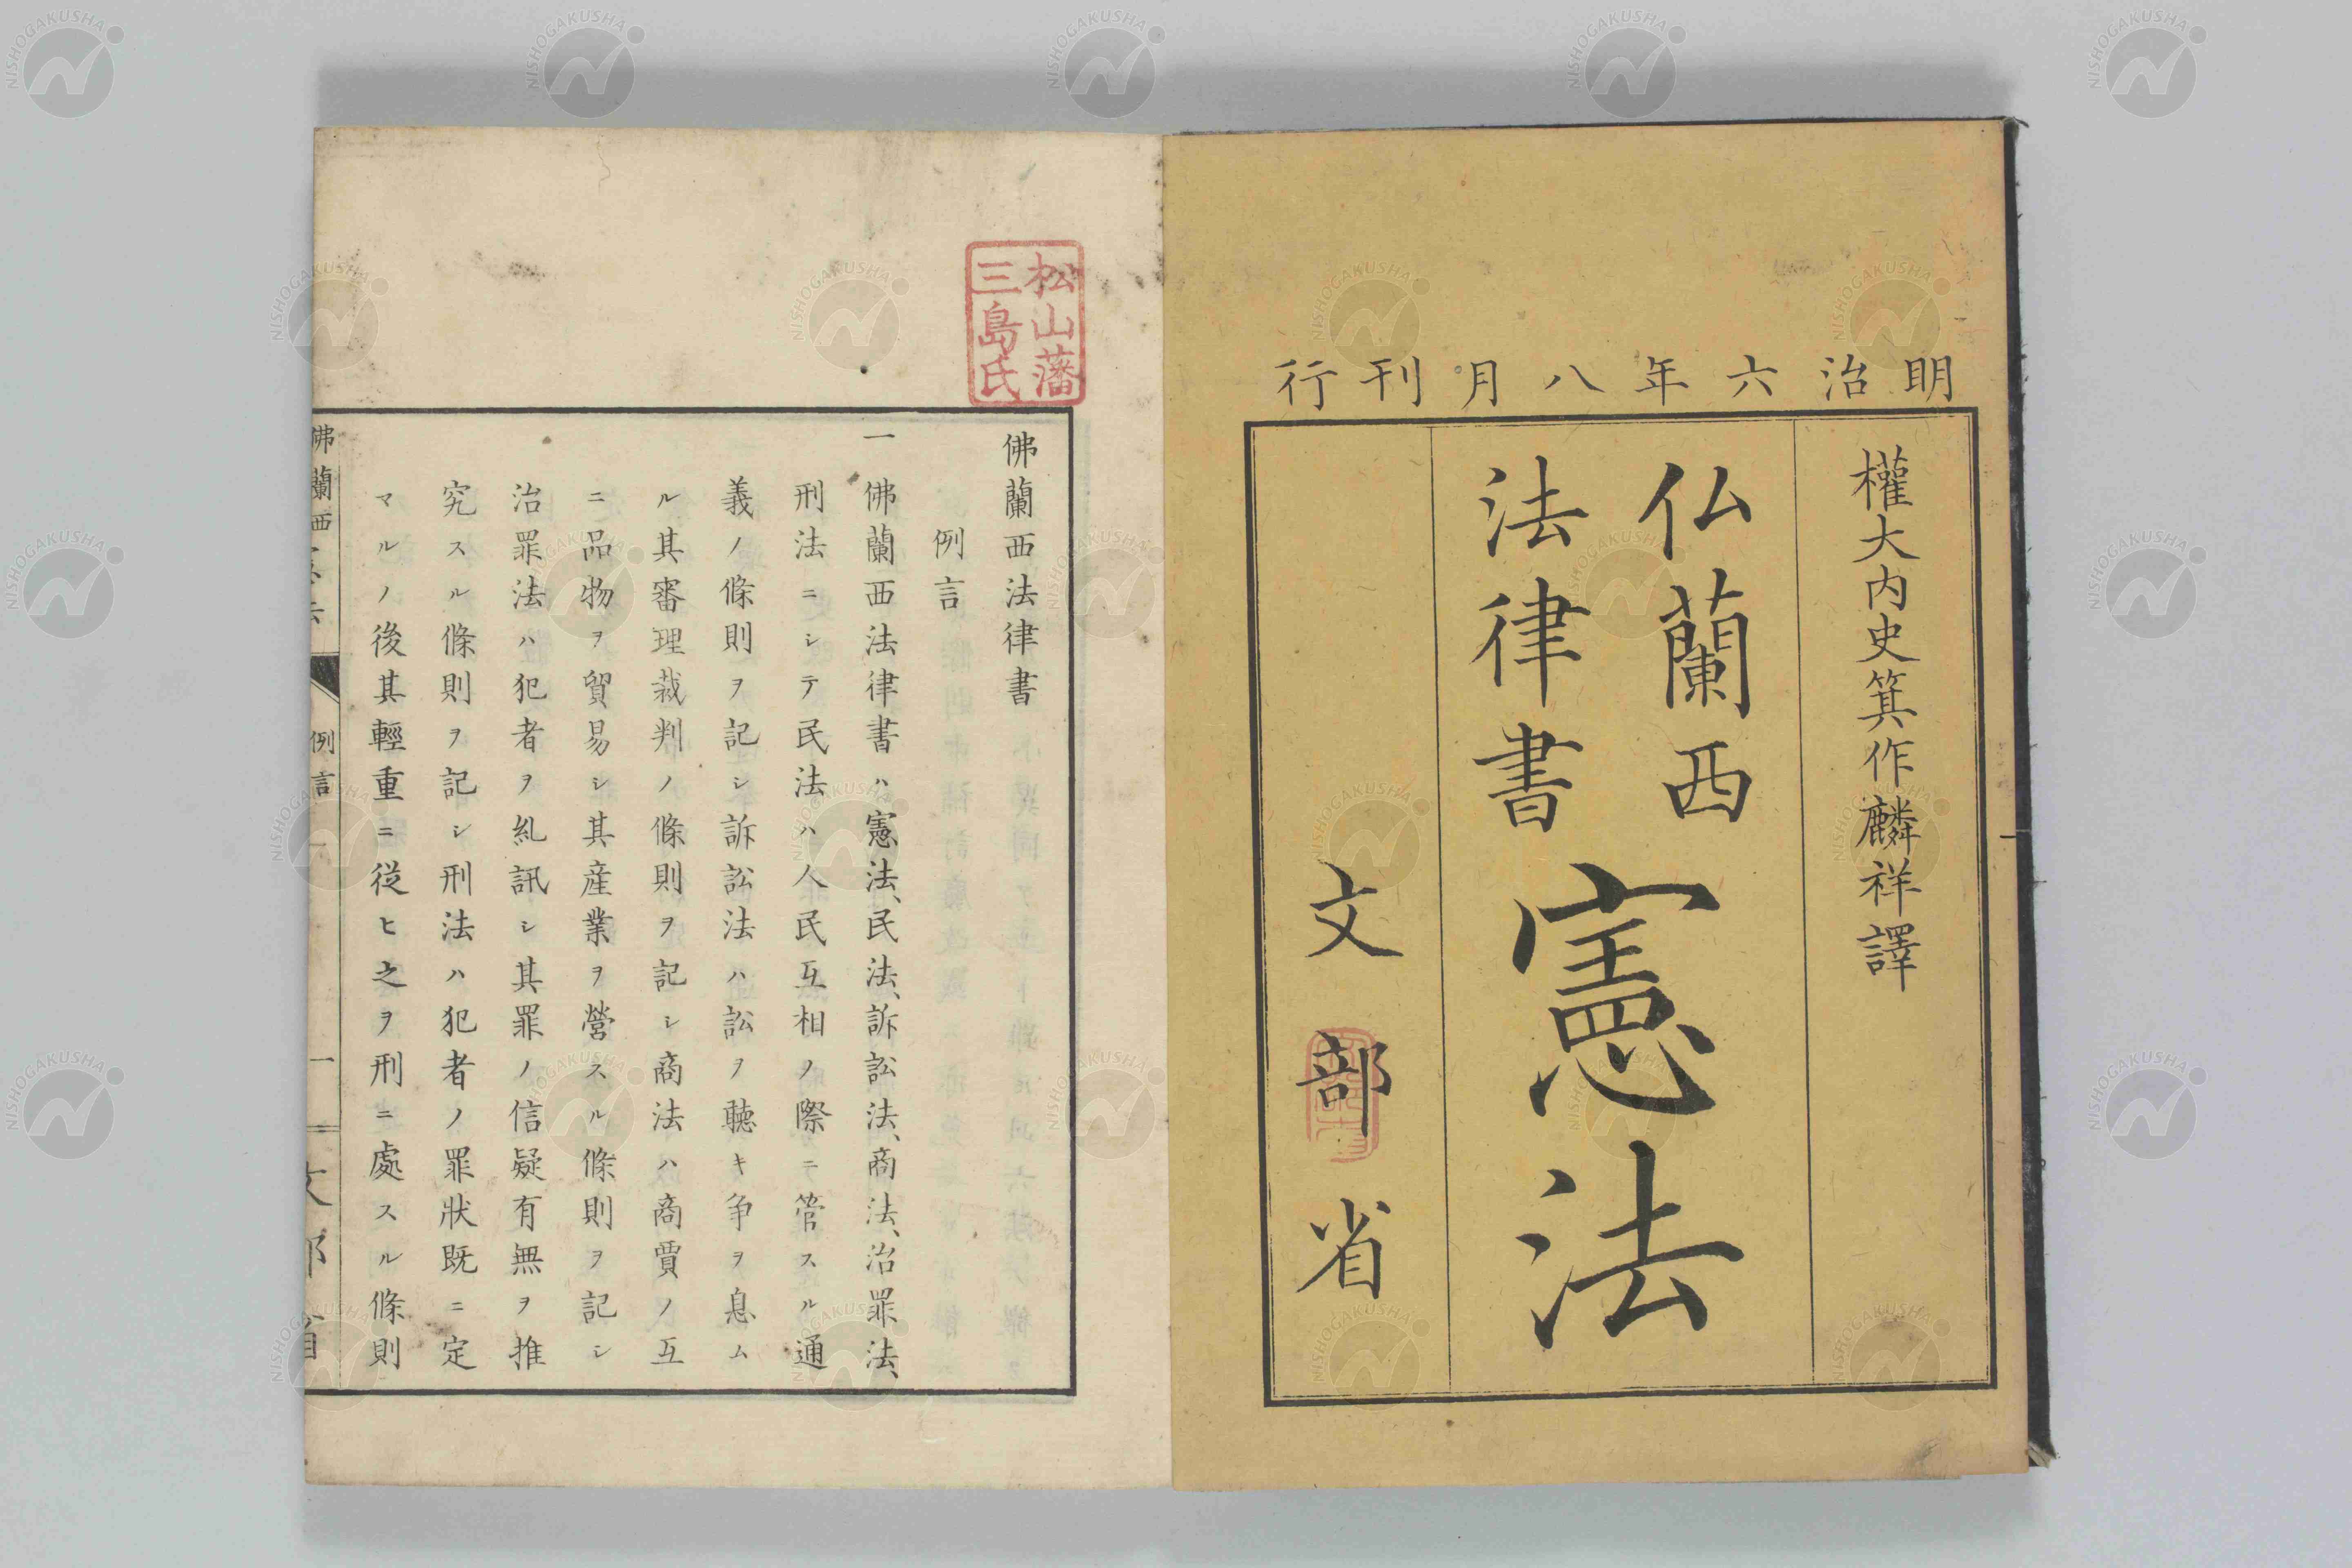 明治六年八月刊行
權大内史箕作麟祥譯
仏蘭西
法律書
憲法
文部省
松山藩
三島氏
佛蘭西法律書
例言
一佛蘭西法律書ハ憲法、民法、訴訟法、商法、治罪法、
刑法ニシテ民法ハ人民互相ノ際ニ管スル通
義ノ條則ヲ記シ訴訟法ハ訟ヲ聴キ争ヲ息ム
ル其審理裁判ノ條則ヲ記シ商法ハ商賈ノ互
ニ品物ヲ貿易シ其産業ヲ營スル條則ヲ記シ
治罪法ハ犯者ヲ糺訊シ其罪ノ信疑有無ヲ推
究スル條則ヲ記シ刑法ハ犯者ノ罪状既ニ定
マルノ後其輕重ニ従ヒ之ヲ刑ニ處スル條則
佛蘭西
例言
一
NISHOGAKUSHA